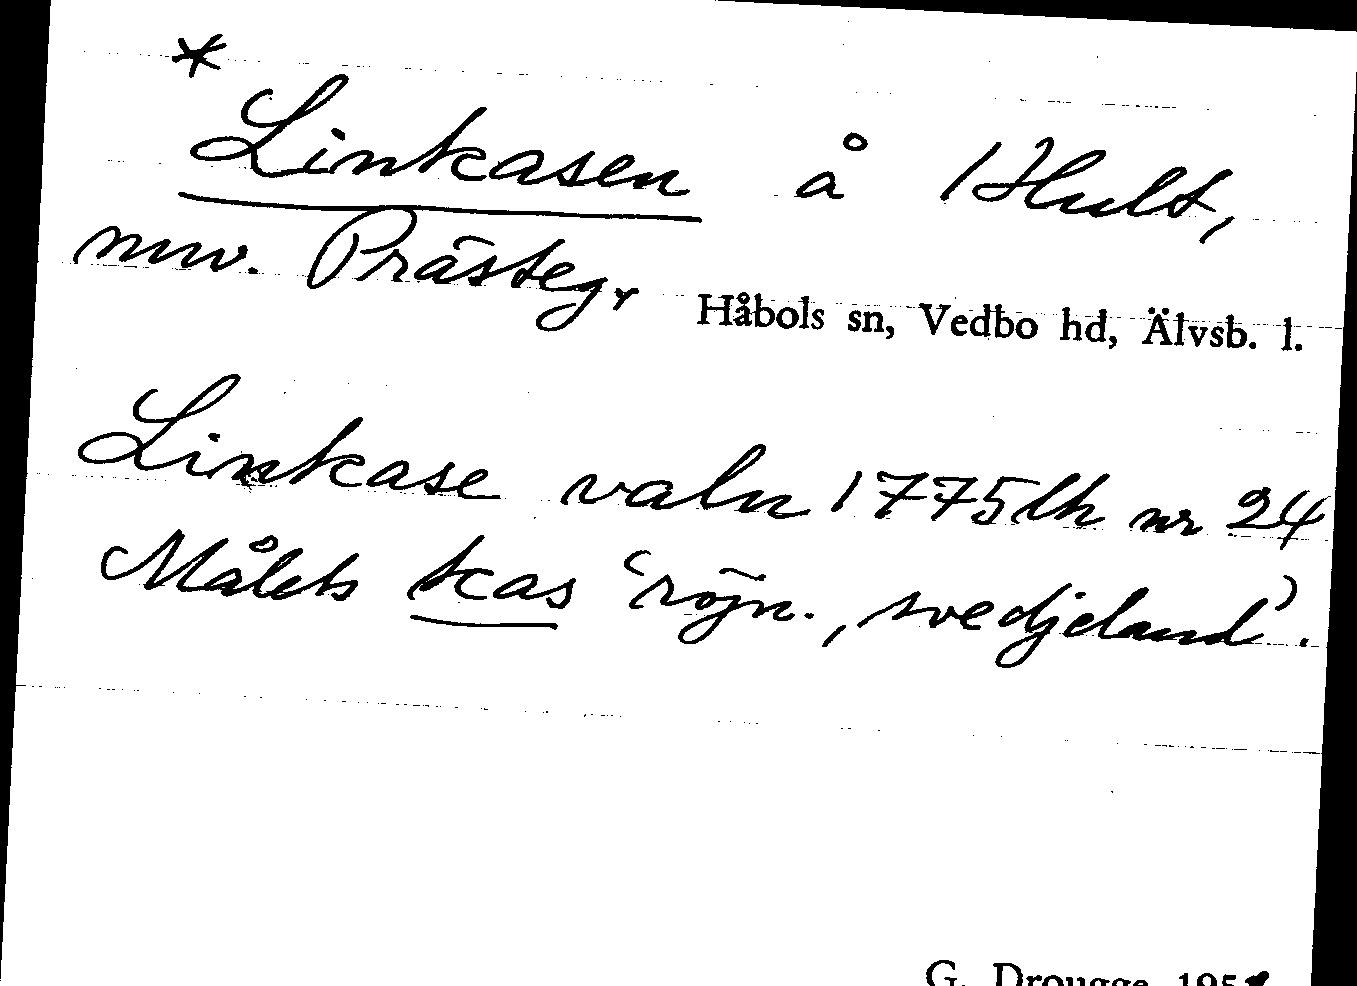 *
Linkasen å Hult,
nuv. Prästeg.
Håbols sn, Vedbo hd, Älvsb. l.
Linkase valn 1775 lh nr 24
Målets kas 'röjn., svedjeland'.
G. Drougge 195